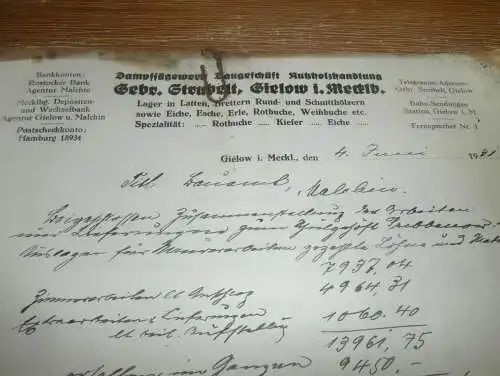 Dampfsägewerk Baugeschäft Nutzholzhandlung
Gebr. Strubelt, Gielow i. Mecklb.
Lager in Latten, Brettern Rund- und Schnitthölzern
sowie Eiche, Esche, Erle, Rotbuche, Weihbuche etc.
Spezialität: ..... Rotbuche ..... Kiefer ..... Eiche .....
Bankkonten:
Rostocker Bank
Agentur Malchin
Mecklbg. Depositen-
und Wechselbank
Agentur Gielow u. Malchin
Postscheckkonto:
Hamburg 18934
Telegramm-Adresse:
Gebr. Strubelt, Gielow
Bahn-Sendungen
Station, Gielow i. M.
Fernsprecher Nr. 1
Gielow i. Meckl., den 4. Juni 19
Bauamt, Malchin.
Zusammenstellung der Arbeiten
und Lieferungen zum
Auslagen für Maurerarbeiten gezahlte Löhne und
7937,04
Zimmerarbeiten lt Anschlag 4964,31
Extraarbeiten & Lieferungen 1060.40
lt beil. Aufstellung
13961,75
erhalten im Ganzen 9450.-